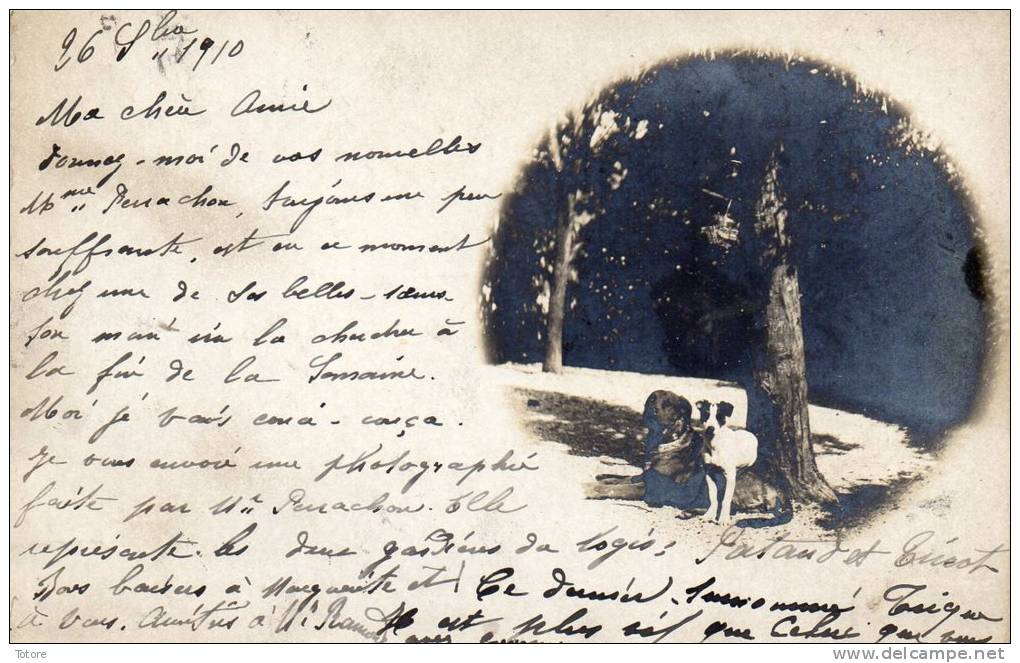 26 Sbre 1910
Ma chère Amie
donnez-moi de vos nouvelles
Mme Perrachon, toujours un peu
souffrante, est en ce moment
chez une de ses belles-sœurs
son mari ira la chercher à
la fin de la Semaine.
Moi je vais couci-couça.
Je vous envoie une photographie
faite par Mr Perrachon. Elle
représente les deux gardiens du logis: Pataud et Tricot
Bons baisers à Marguerite et Ce dernier, surnommé Trique
à vous. Amitiés à Mr est plus vif que celui que vous
avec
Totore
http://www.delcampe.net